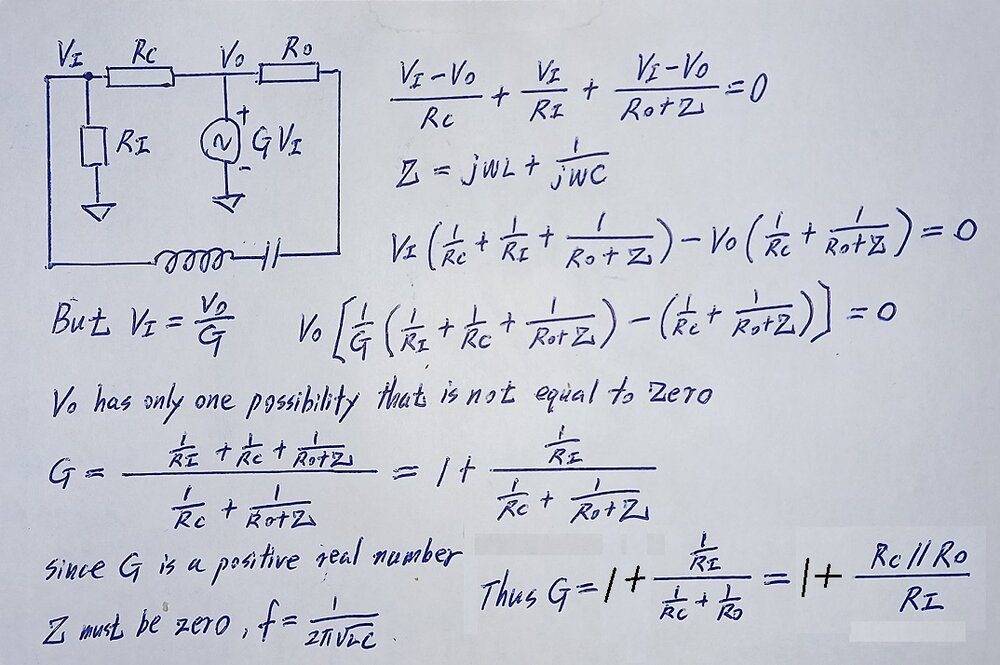 VI RC VO RO
RI
+
GVI
-
(VI-VO)/RC + VI/RI + (VI-VO)/(RO+Z) = 0
Z = jWL + 1/(jWC)
VI(1/RC + 1/RI + 1/(RO+Z)) - VO(1/RC + 1/(RO+Z)) = 0
But VI = VO/G VO[1/G(1/RI + 1/RC + 1/(RO+Z)) - (1/RC + 1/(RO+Z))] = 0
VO has only one possibility that is not equal to zero
G = (1/RI + 1/RC + 1/(RO+Z))/(1/RC + 1/(RO+Z)) = 1 + (1/RI)/(1/RC + 1/(RO+Z))
since G is a positive real number
Z must be zero, f = 1/(2π√LC)
Thus G = 1 + (1/RI)/(1/RC + 1/RO) = 1 + (RC//RO)/RI